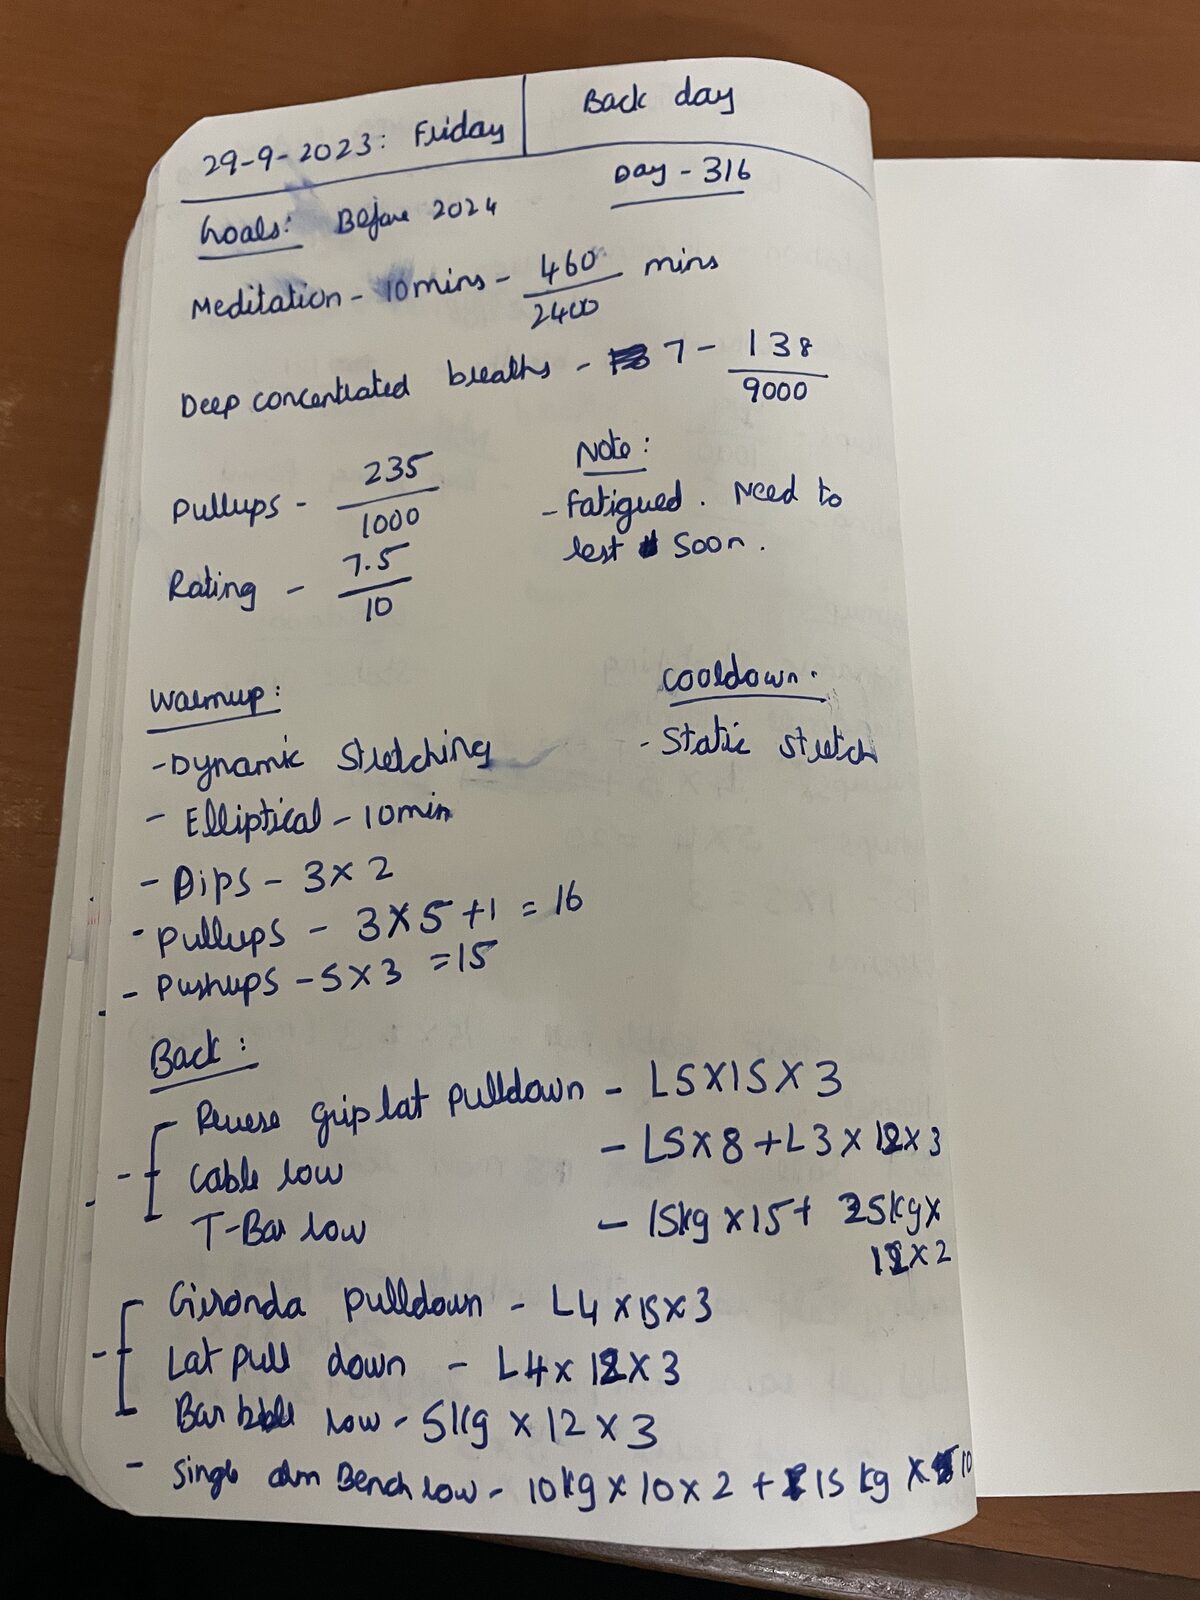 29-9-2023: Friday
Back day
Day - 316
Goals: Before 2024
Meditation - 10 mins - 460/2400 mins
Deep concentrated breaths - 7 - 138/9000
Pullups - 235/1000
Rating - 7.5/10
Note:
- Fatigued. Need to
rest soon.
Warmup:
- Dynamic stretching
- Elliptical - 10min
- Dips - 3 x 2
- Pullups - 3 x 5 + 1 = 16
- Pushups - 5 x 3 = 15
Cooldown.
- Static stretch
Back:
- Reverse grip lat pulldown - L5 x 15 x 3
Cable row - L5 x 8 + L3 x 12 x 3
T-Bar row - 15kg x 15 + 25kg x
12 x 2
- Gironda pulldown - L4 x 15 x 3
Lat pull down - L4 x 12 x 3
Barbble row - 5kg x 12 x 3
- Single arm Bench row - 10kg x 10 x 2 + 15 kg x 10